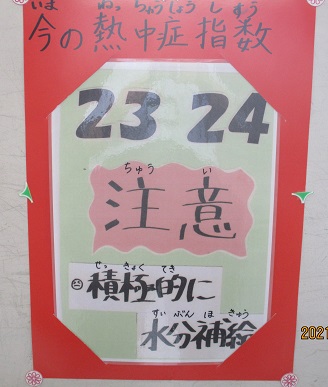 いま ねっちゅうしょうしすう
今の熱中症指数
23 24
ちゅうい
注意
せっきょくてき
積極的に
すいぶんほきゅう
水分補給
2021